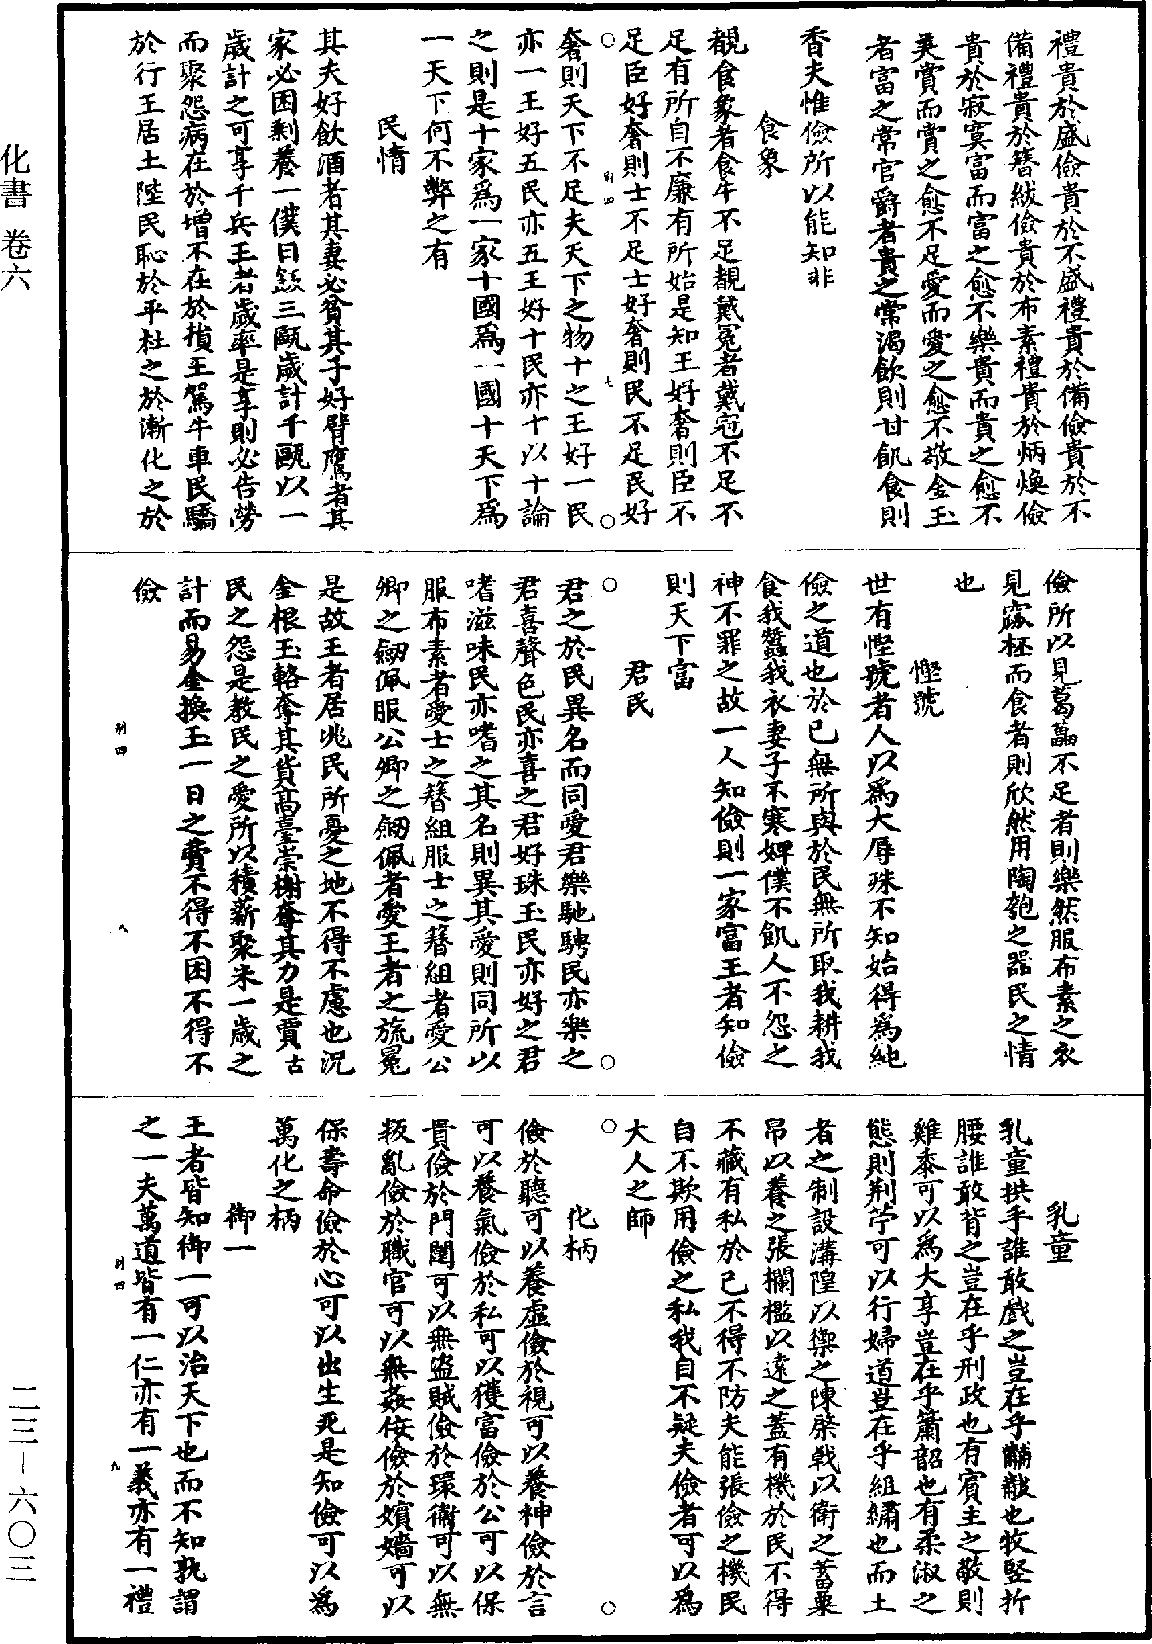 禮貴於盛儉貴於不盛禮貴於備儉貴於不
備禮貴於簪紱儉貴於布素禮貴於炳煥儉
貴於寂寞富而富之愈不樂貴而貴之愈不
美賞而賞之愈不足愛而愛之愈不敬金玉
者富之常官爵者貴之常渴飲則甘飢食則
香夫惟儉所以能知非
食象
觀食象者食牛不足觀戴冕者戴冠不足不
足有所自不廉有所始是知王好奢則臣不
足臣好奢則士不足士好奢則民不足民好
別四 七
奢則天下不足夫天下之物十之王好一民
亦一王好五民亦五王好十民亦十以十論
之則是十家爲一家十國爲一國十天下爲
一天下何不弊之有
民情
其夫好飲酒者其妻必貧其子好臂鷹者其
家必困剩養一僕日飯三甌歲計千甌以一
歲計之可享千兵王者歲率是享則必告勞
而聚怨病在於增不在於損王駕牛車民驕
於行王居土陛民恥於平杜之於漸化之於
儉所以見葛藟不足者則樂然服布素之衣
見窳柸而食者則欣然用陶匏之器民之情
也
慳號
世有慳號者人以爲大辱殊不知始得爲純
儉之道也於己無所與於民無所取我耕我
食我蠶我衣妻子不寒婢僕不飢人不怨之
神不罪之故一人知儉則一家富王者知儉
則天下富
君民
君之於民異名而同愛君樂馳騁民亦樂之
君喜聲色民亦喜之君好珠玉民亦好之君
嗜滋味民亦嗜之其名則異其愛則同所以
服布素者愛士之簪組服士之簪組者愛公
卿之劒佩服公卿之劒佩者愛王者之旒冕
是故王者居兆民所憂之地不得不慮也況
金根玉輅奪其貨高臺崇榭奪其力是賈古
民之怨是教民之愛所以積薪聚米一歲之
計而易金換玉一日之費不得不困不得不
儉
別四 八
乳童
乳童拱手誰敢戲之豈在乎黼黻也牧豎折
腰誰敢背之豈在乎刑政也有賓主之敬則
雞黍可以爲大享豈在乎簫韶也有柔淑之
態則荆苧可以行婦道豈在乎組繡也而土
者之制設溝隍以禦之陳棨戟以衛之蓄粟
帛以養之張欄檻以遠之蓋有機於民不得
不藏有私於己不得不防夫能張儉之機民
自不欺用儉之私我自不疑夫儉者可以爲
大人之師
化柄
儉於聽可以養虛儉於視可以養神儉於言
可以養氣儉於私可以獲富儉於公可以保
貴儉於門闥可以無盜賊儉於環衛可以無
叛亂儉於職官可以無姦佞儉於嬪嬙可以
保壽命儉於心可以出生死是知儉可以爲
萬化之柄
御一
王者皆知御一可以治天下也而不知孰謂
之一夫萬道皆有一仁亦有一義亦有一禮
別四 九
化書 卷六
二三—六〇三